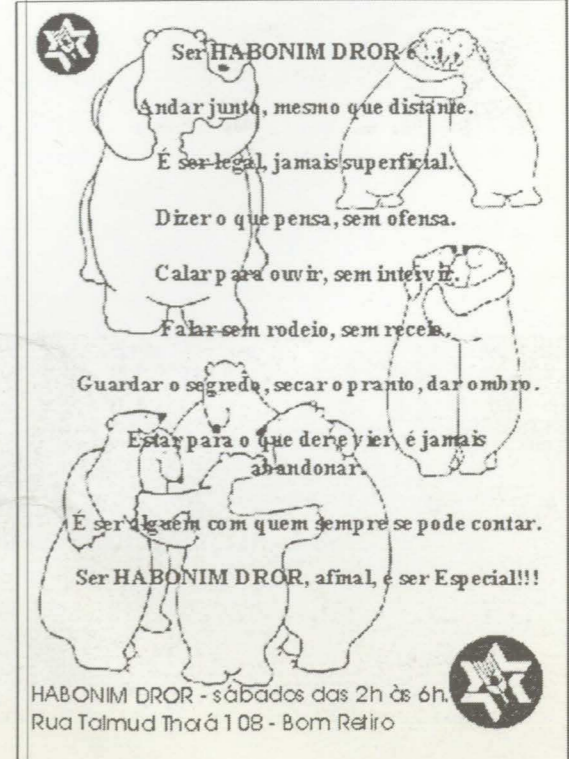 Ser HABONIM DROR é ...
Andar junto, mesmo que distante.
É ser legal, jamais superficial.
Dizer o que pensa, sem ofensa.
Calar para ouvir, sem intervir.
Falar sem rodeio, sem receio.
Guardar o segredo, secar o pranto, dar ombro.
Estar para o que der e vier, é jamais
abandonar.
É ser alguém com quem sempre se pode contar.
Ser HABONIM DROR, afinal, é ser Especial!!!
HABONIM DROR - sábados das 2h às 6h.
Rua Talmud Thorá 108 - Bom Retiro